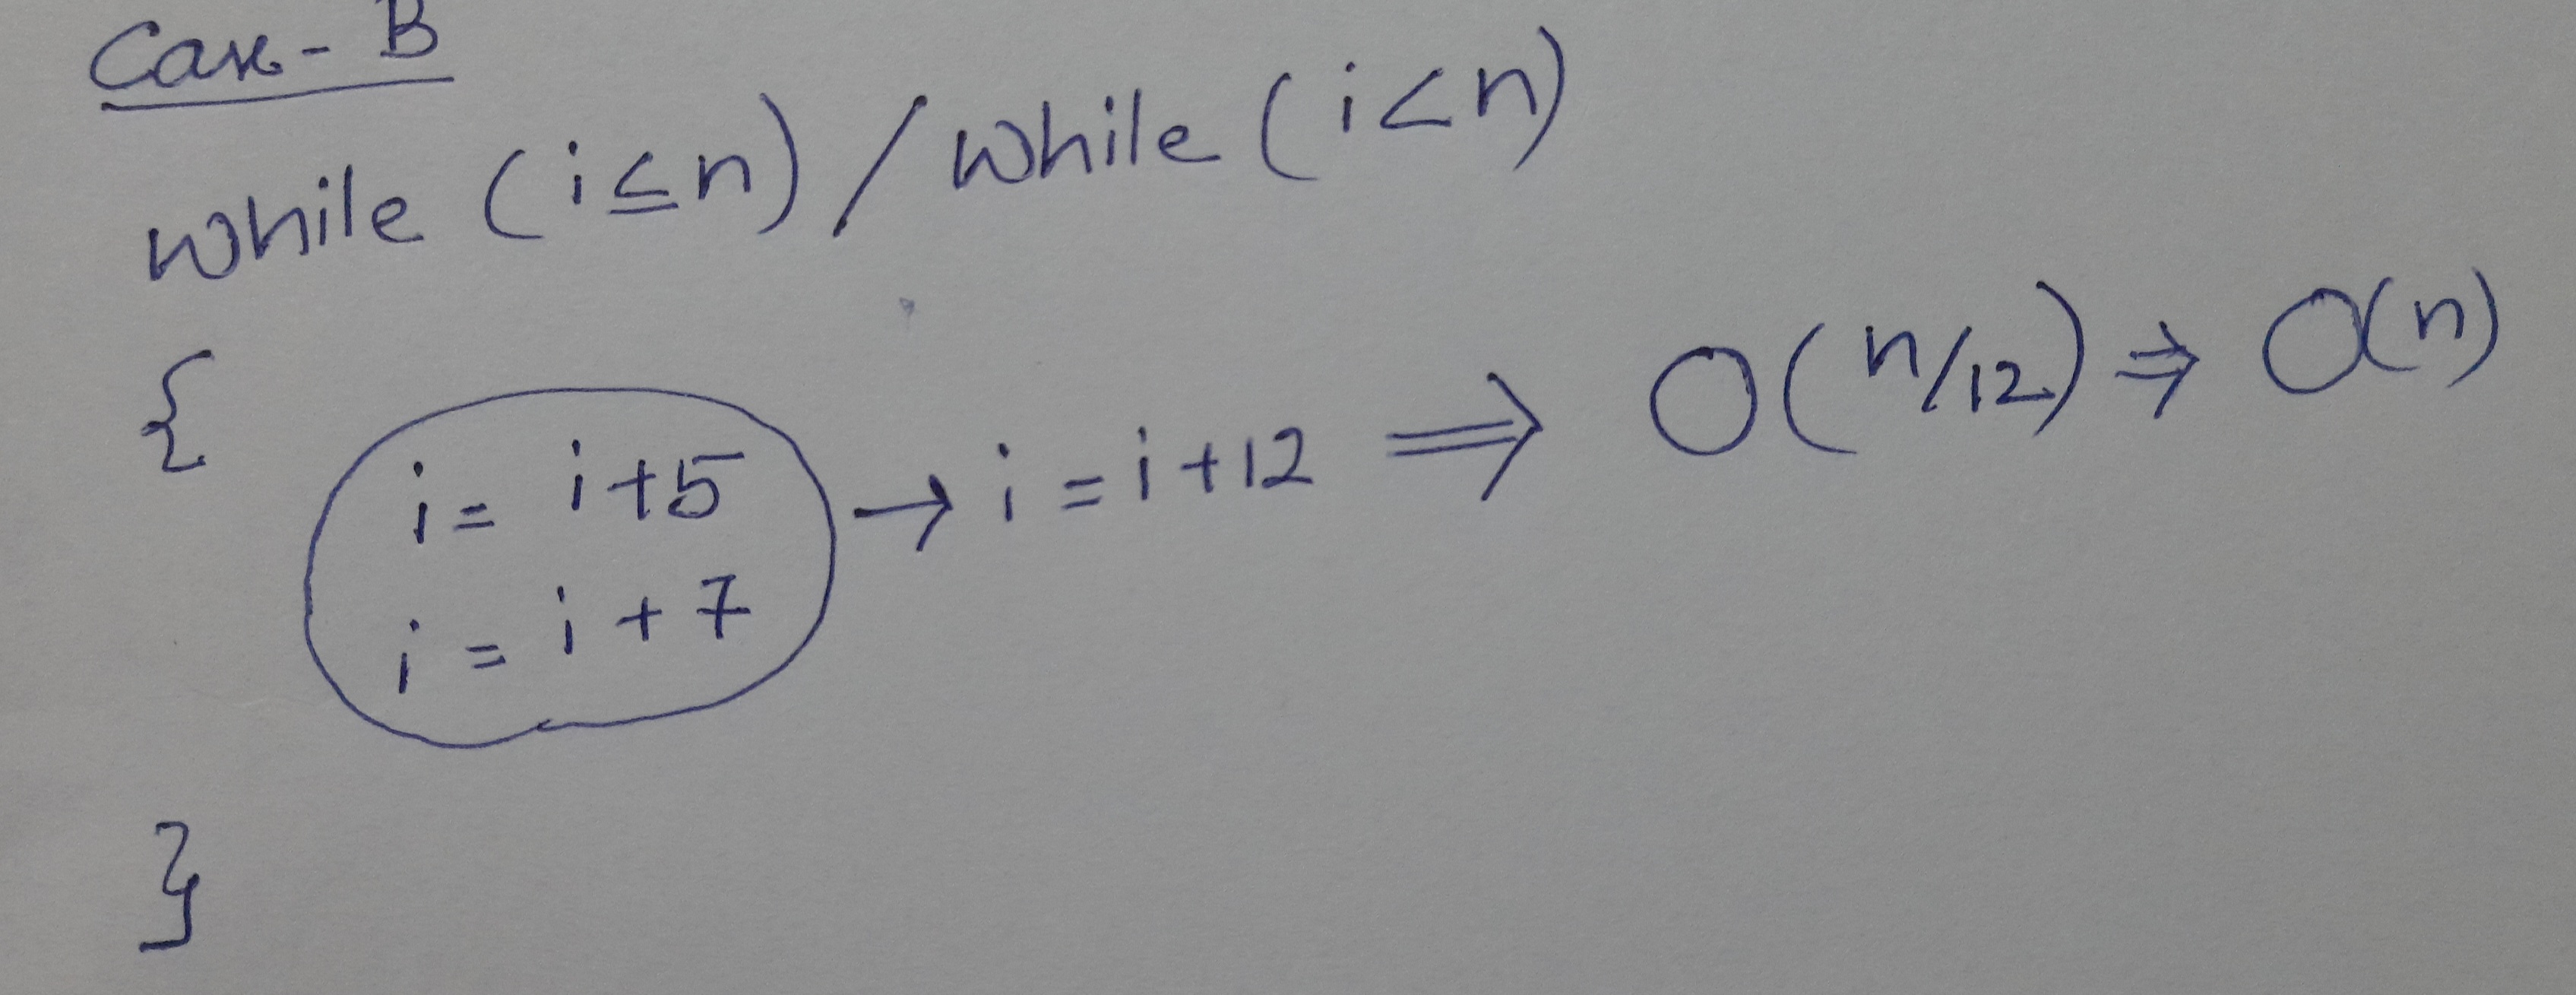 Case - B
while (i ≤ n) / while (i < n)
{
i = i + 5
i = i + 7
→ i = i + 12 ⇒ O(n/12) ⇒ O(n)
}